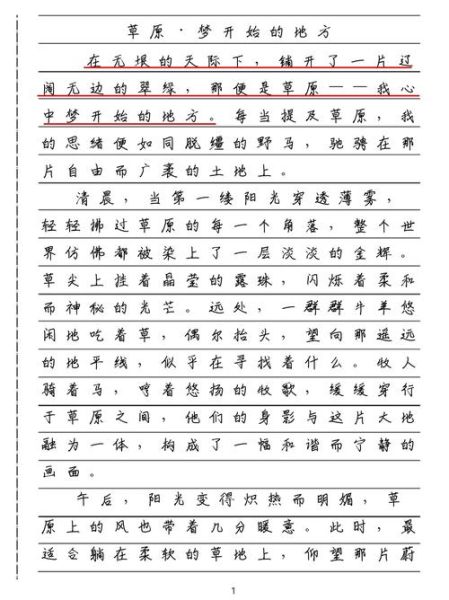 草原·梦开始的地方
在无垠的天际下，铺开了一片辽
阔无边的翠绿，那便是草原——我心
中梦开始的地方。每当提及草原，我
的思绪便如同脱缰的野马，驰骋在那
片自由而广袤的土地上。
清晨，当第一缕阳光穿透薄雾，
轻轻拂过草原的每一个角落，整个世
界仿佛都被染上了一层淡淡的金辉。
草尖上挂着晶莹的露珠，闪烁着柔和
而神秘的光芒。远处，一群群牛羊悠
闲地吃着草，偶尔抬头，望向那遥远
的地平线，似乎在寻找着什么。牧人
骑着马，哼着悠扬的牧歌，缓缓穿行
于草原之间，他们的身影与这片大地
融为一体，构成了一幅和谐而宁静的
画面。
午后，阳光变得炽热而明媚，草
原上的风也带着几分暖意。此时，最
适合躺在柔软的草地上，仰望那片蔚
1